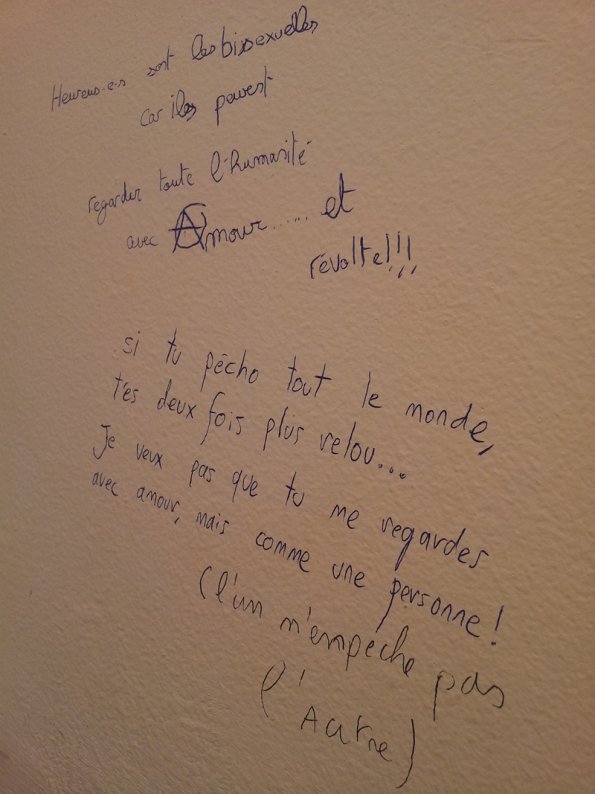 Heureus-e-s sont les bisexuelles
car iles peuvent
regarder toute l'humanité
avec Amour...... et
révolte!!!
si tu pécho tout le monde,
t'es deux fois plus relou...
Je veux pas que tu me regardes
avec amour, mais comme une personne!
(l'un n'empêche pas
l'Autre)